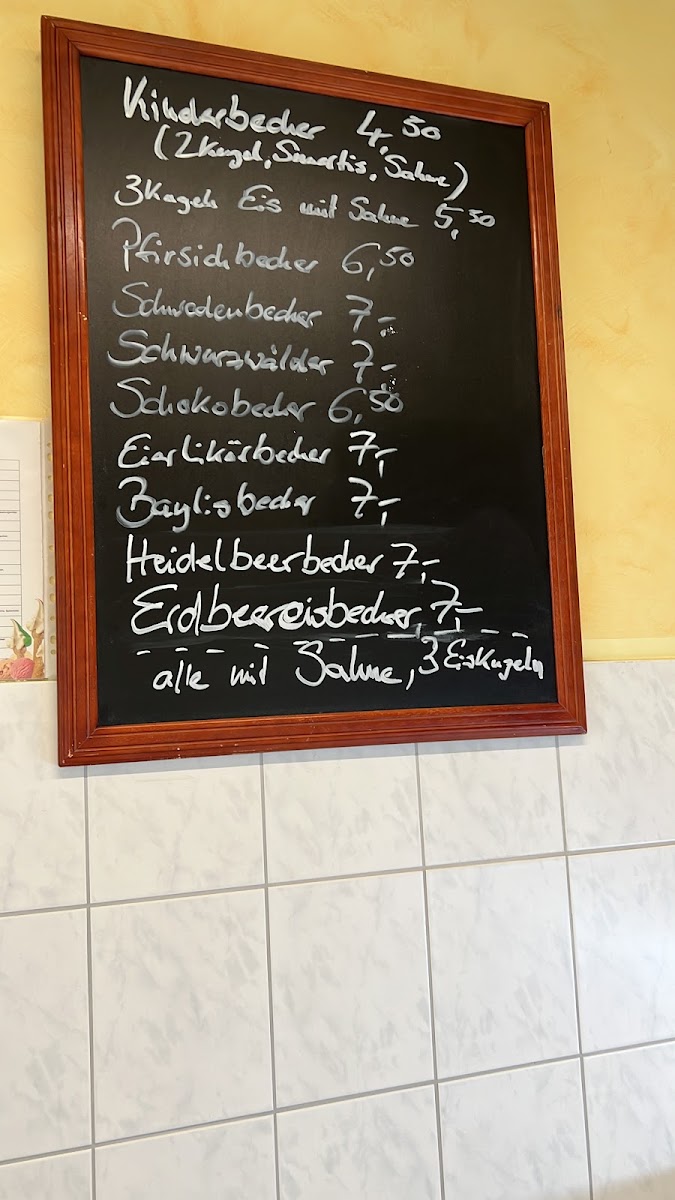 Kinderbecher 4,50
(2 Kugel, Smartis, Sahne)
3 Kugeln Eis mit Sahne 5,50
Pfirsichbecher 6,50
Schwedenbecher 7,-
Schwarzwälder 7,-
Schokobecher 6,50
Eierlikörbecher 7,-
Baylisbecher 7,-
Heidelbeerbecher 7,-
Erdbeereisbecher 7,-
alle mit Sahne, 3 Eiskugeln